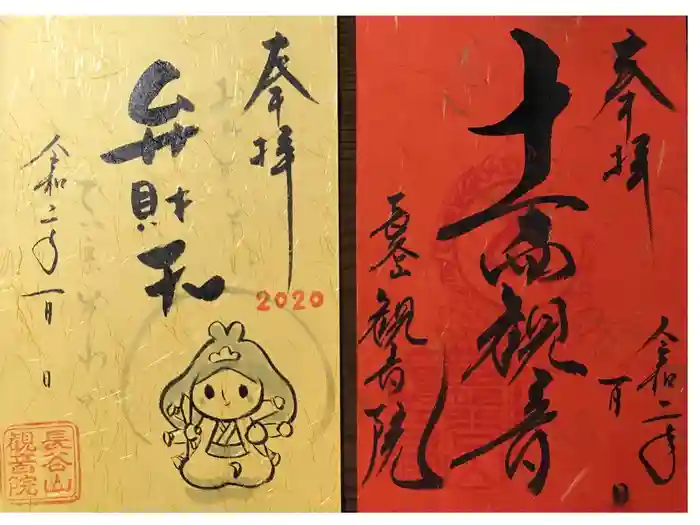 奉拝
弁財和
令和二年
一月 日
2020
長谷山
観音院
奉拝
十一面観音
長谷山 観音院
令和二年
一月 日